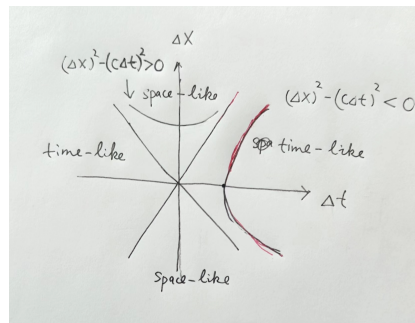 ΔX
(ΔX)²-(cΔt)²>0
↓ space-like
(ΔX)²-(cΔt)²<0
time-like
time-like
Δt
space-like